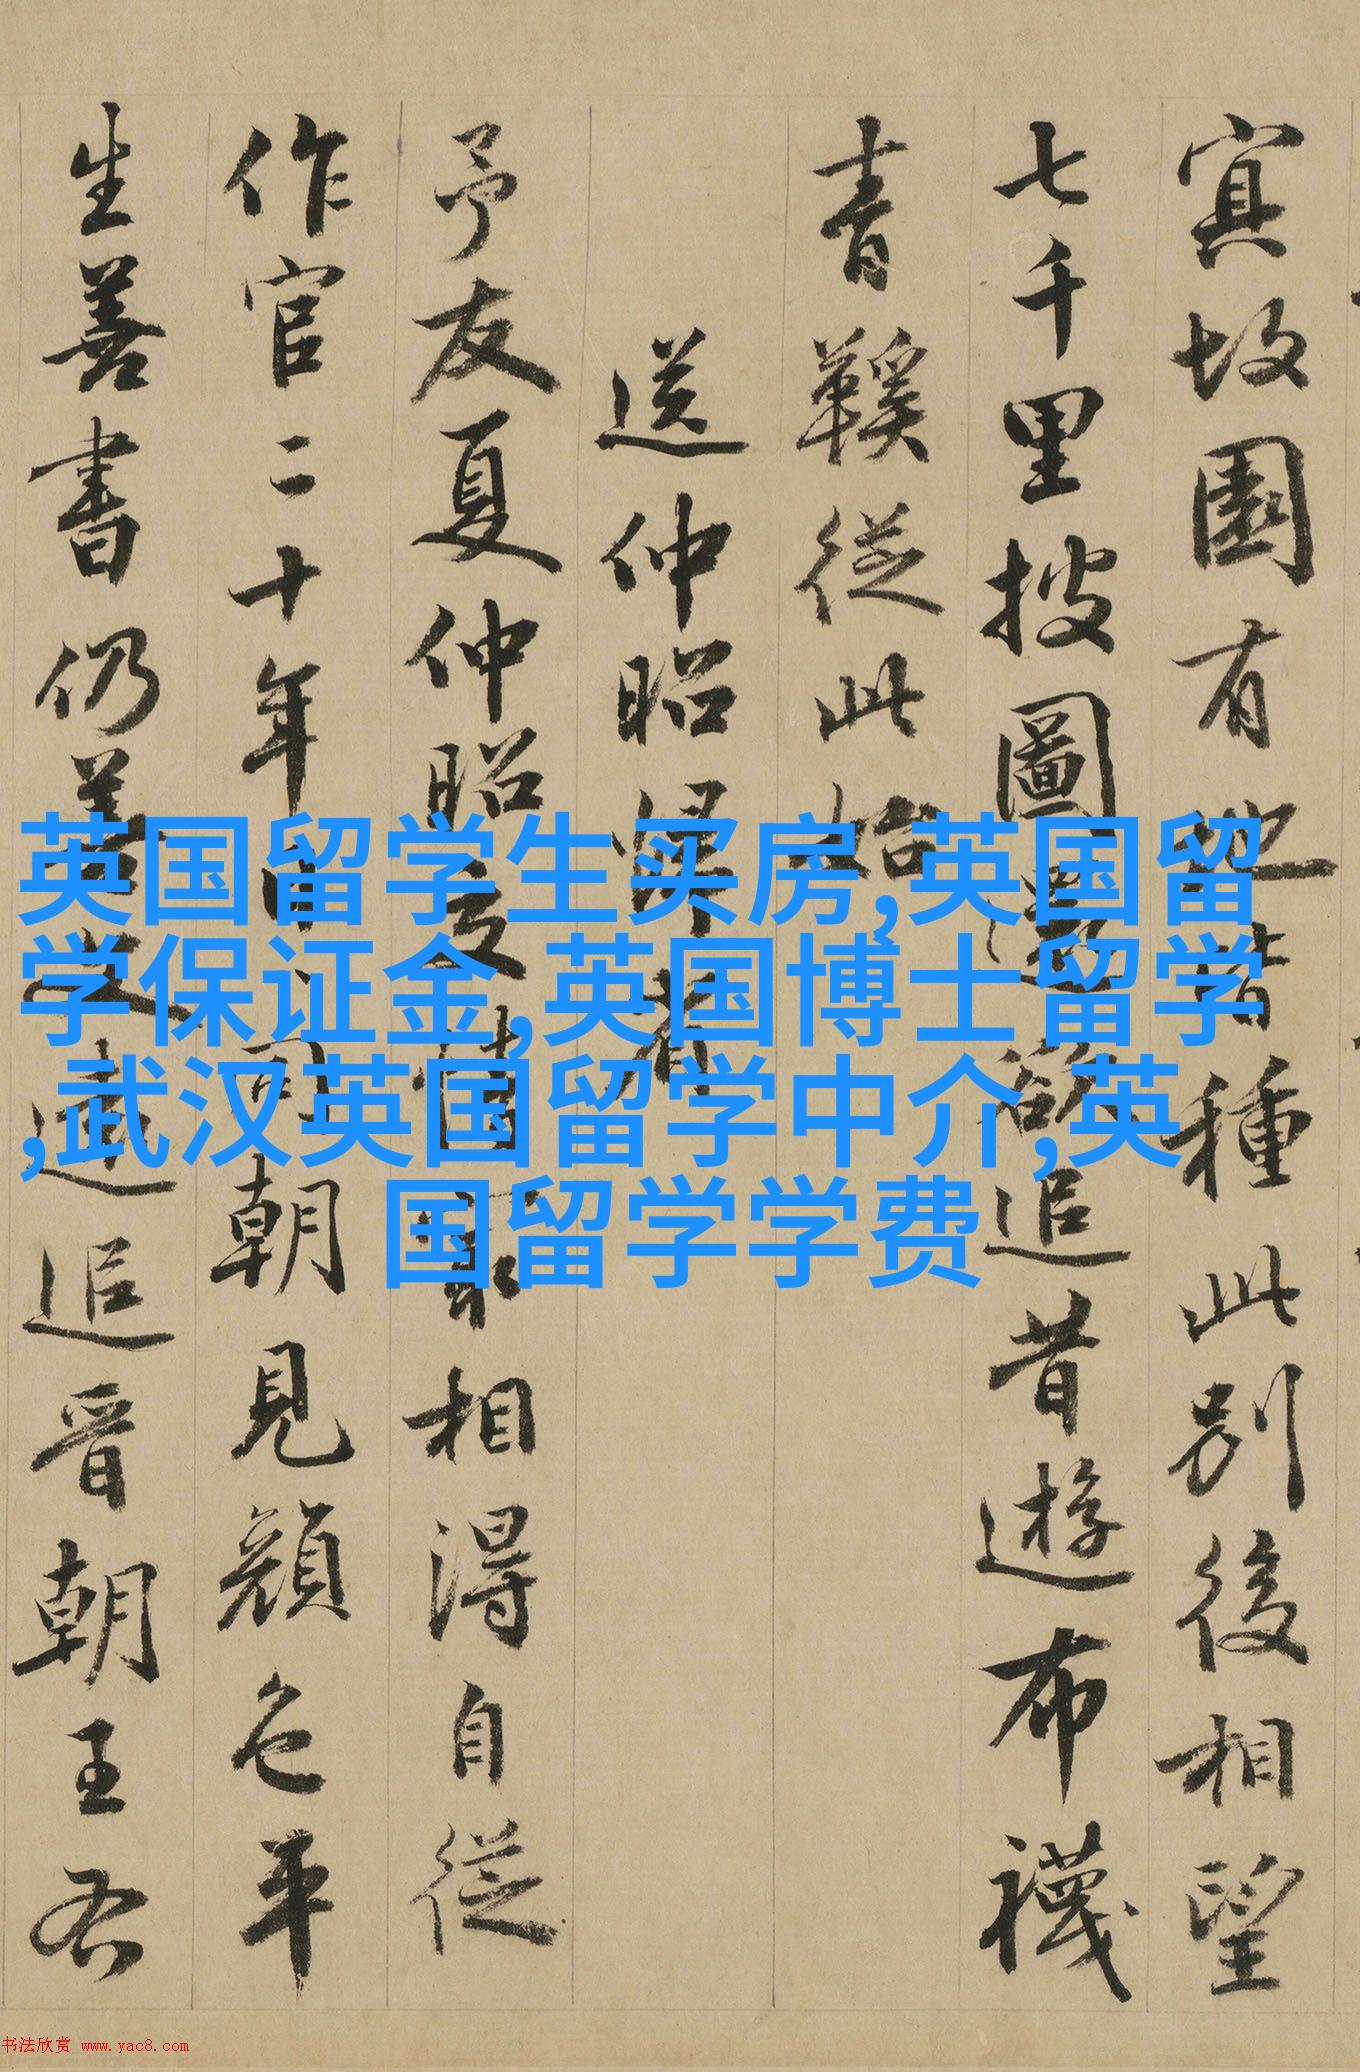 寘故園有地皆種此別後相望
七千里披圖題欲追昔遊布襪
青鞵從此始
送仲昭歸省
予友夏仲昭交情最相得自從
作官二十年日同朝見顏色平
生善書仍善文遠追晉朝王右
英国留学生买房,英国留
学保证金,英国博士留学
,武汉英国留学中介,英
国留学学费
书法欣赏 www.yac8.com